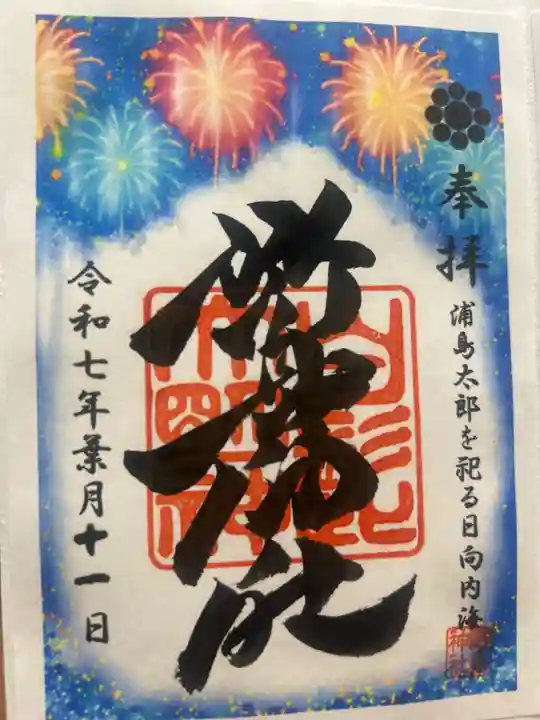 奉拝
浦島太郎を祀る日向内海
野島神社
令和七年葉月十一日